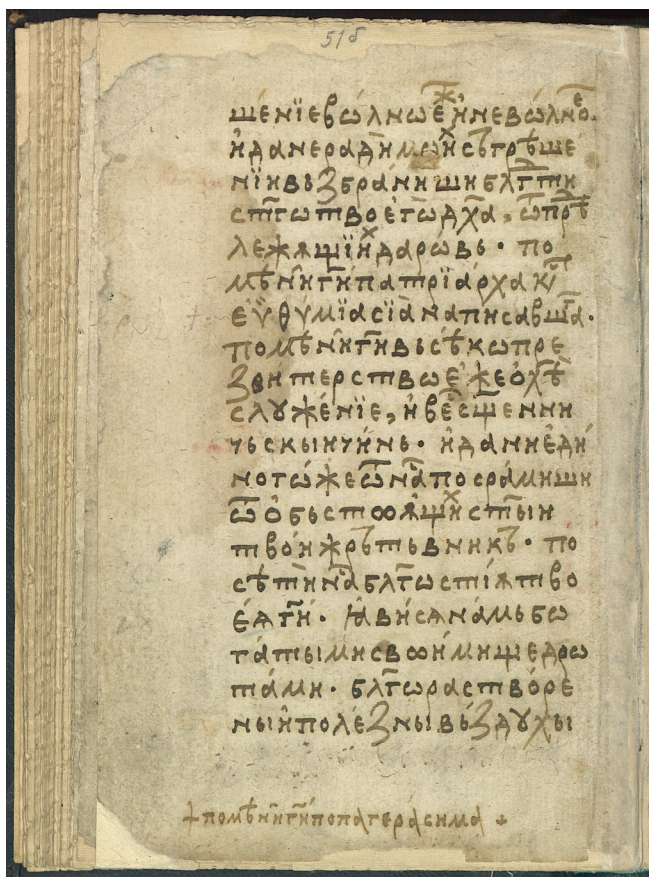 51б
щенїе вѡ́лнѡе́ж ѝ невѡ́лное.
ѝ да не ради мѡи́х съгрѣше
нїи въз̾бра́ниши блгⷣти
ст҃гѡ твоегѡ̀ дх҃а, ѿ прѣⷣ
лежѧщїи́х дарѡ́вь · по
мѣнѝ гѝ патрїарха кѵⷬ
еѵ̓ѳѵ́мїа сїа̀ написавша́г ·
помѣнѝ гѝ вьсѣ́ко пре
зви́терство е́же о хѣ̀
слꙋже́нїе, ѝ въсе́ сщенни
чьскыи чи́нь · ѝ да ни еди́
ного́же ѿ на́с посра́миши
ѿ о́бьстоѧ́щих ст҃ыи
тво́и жръ́тьвникъ · по
сѣтѝ на́с блгⷭ҇тїѧ тво
еѧ̀ гѝ · ꙗ҆ви́сѧ на́мь бѡ
га́тыми своѝми щедрѡ
та́ми · блгⷭ҇ораство́ре
ны ѝ поле́зны въ́здꙋхы
+ помѣнѝ гѝ попа гера́сима +